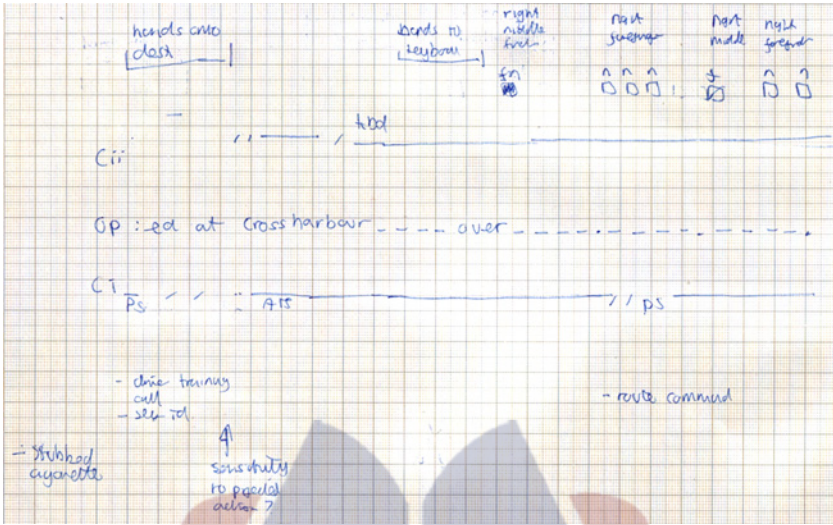 hands onto
desk
hands to
keyboard
right
middle
right
forefinger
right
middle
right
forefinger
fn
n n n
f
n n
kbd
Cii
Op : ed at Crossharbour - - - - over - - - -
Ci
Ps
AIS
ps
- training
call
- sets id
- route command
- stubbed
cigarette
sensitivity
to
action ?